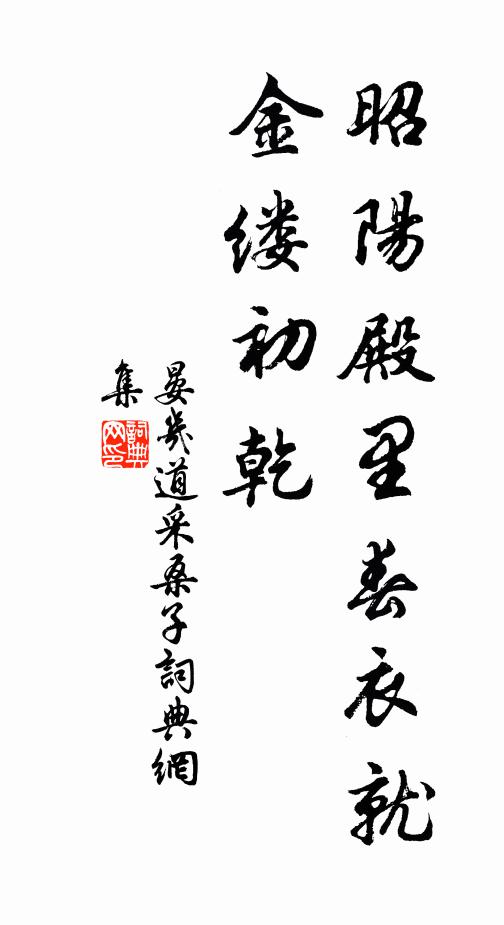 昭陽殿里春衣就
金缕初乾
晏幾道采桑子詞典網
集
詞典
网印